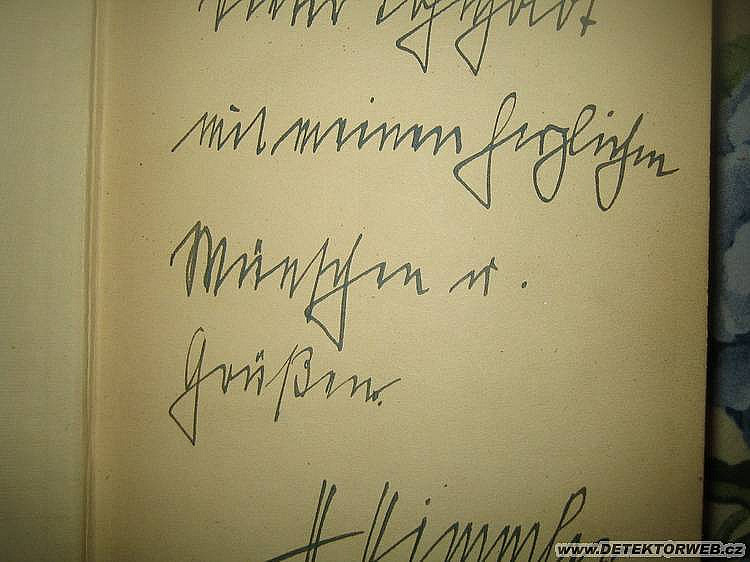 mit meinen herzlichen
Wünschen u.
Grüßen.
H Himmler
www.DETEKTORWEB.cz